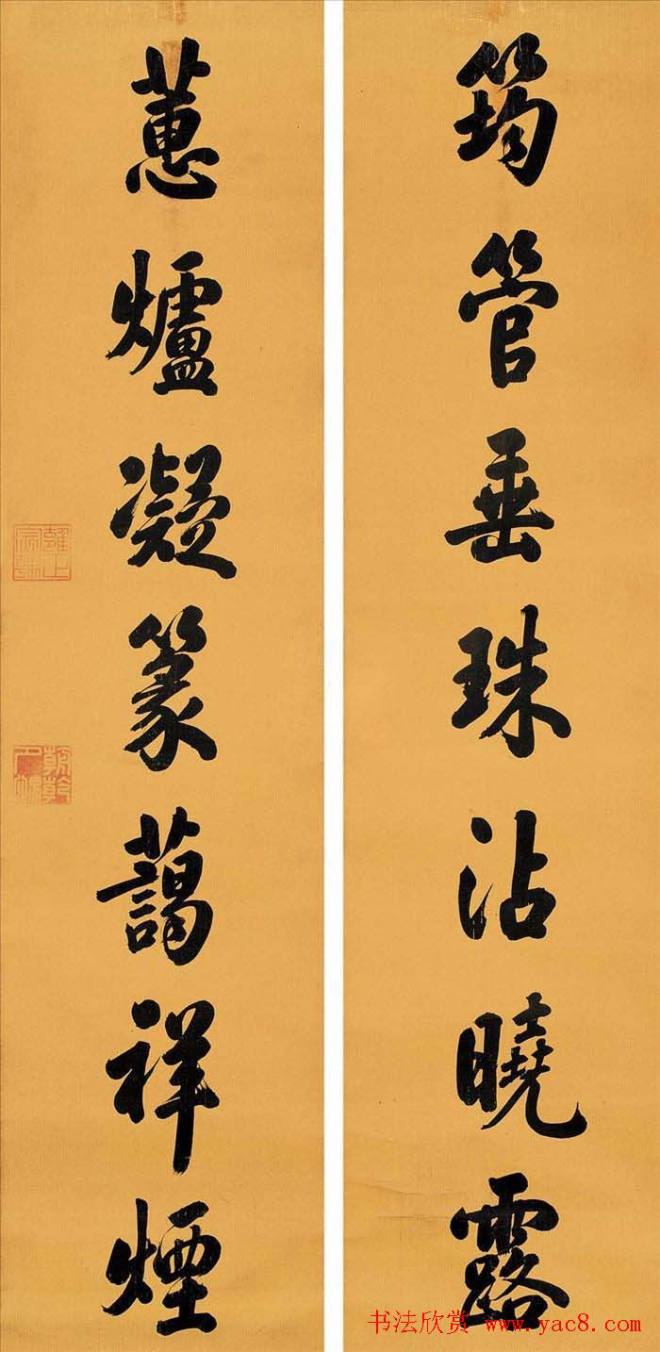 筠管垂珠沾曉露
蕙爐凝篆藹祥煙
书法欣赏 www.yac8.com